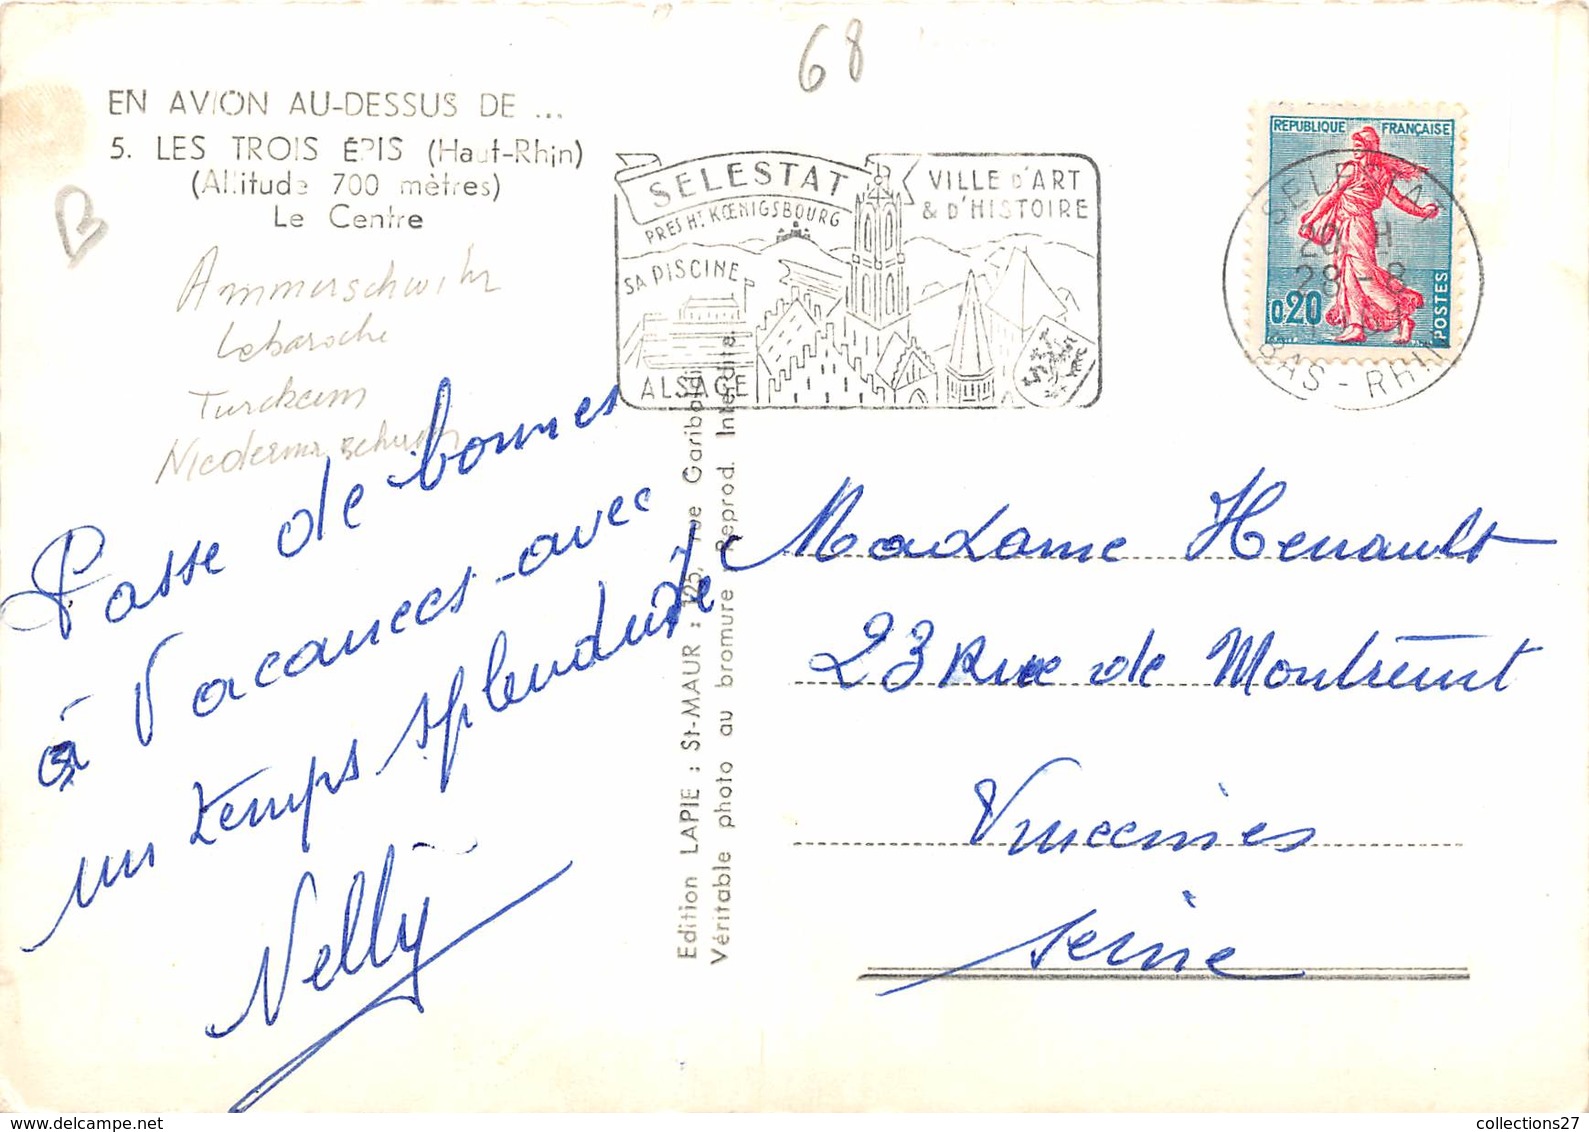 68
EN AVION AU-DESSUS DE ...
5. LES TROIS ÉPIS (Haut-Rhin)
(Altitude 700 mètres)
Le Centre
B
Ammerschwihr
Labaroche
Turckeim
SELESTAT
PRES Hᵗ KŒNIGSBOURG
SA PISCINE
ALSACE
VILLE D'ART
& D'HISTOIRE
REPUBLIQUE FRANÇAISE
0,20
POSTES
SELESTAT
20 H
28 - 8
BAS - RHIN
Passe de bonnes
à Vacances avec
un temps splendide
Nelly
Edition LAPIE : St-MAUR : 125, rue Garibaldi
Véritable photo au bromure Reprod. Interdite
Madame Henault
23 Rue de Montreuil
Vincennes
Seine
collections27